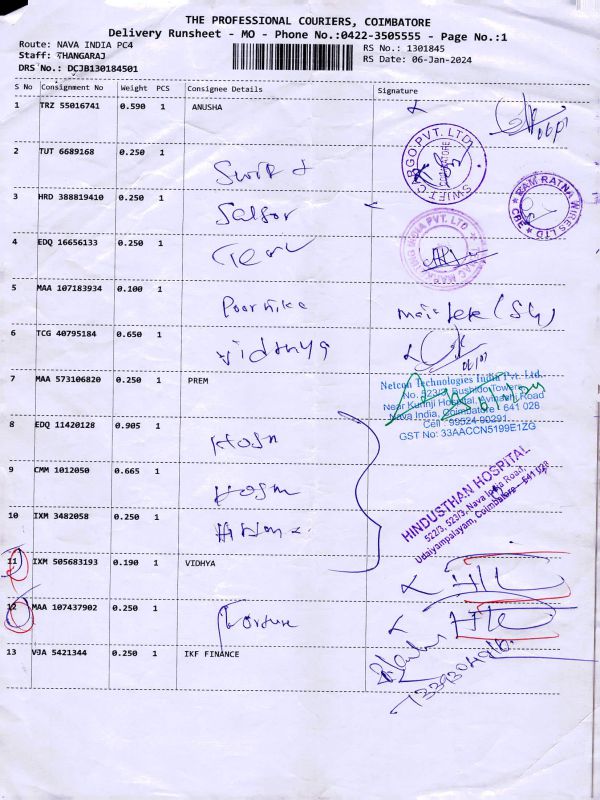 THE PROFESSIONAL COURIERS, COIMBATORE
Delivery Runsheet - MO - Phone No.:0422-3505555 - Page No.:1
Route: NAVA INDIA PC4
RS No.: 1301845
Staff: THANGARAJ
RS Date: 06-Jan-2024
DRS No.: DCJB130184501
S No Consignment No Weight PCS Consignee Details Signature
1 TRZ 55016741 0.590 1 ANUSHA
2 TUT 6689168 0.250 1
SWIFT CARGO PVT. LTD
COIMBATORE
3 HRD 388819410 0.250 1
RAM RATNA WIRES LTD
CBE
4 EDQ 16656133 0.250 1
INDIA PVT. LTD
5 MAA 107183934 0.100 1 Poornika
6 TCG 40795184 0.650 1 Vidhya
7 MAA 573106820 0.250 1 PREM
Netcon Technologies India Pvt. Ltd.
No. 523/3, Bushido Towers,
Near Kurinji Hospital, Avinashi Road
Nava India, Coimbatore - 641 028
Cell : 99524 90291
GST No: 33AACCN5199E1ZG
8 EDQ 11420128 0.905 1
9 CMM 1012050 0.665 1
10 IXM 3482058 0.250 1
HINDUSTHAN HOSPITAL
522/3, 523/3, Nava India Road,
Udaiyampalayam, Coimbatore - 641 028
11 IXM 505683193 0.190 1 VIDHYA
12 MAA 107437902 0.250 1
13 VJA 5421344 0.250 1 IKF FINANCE